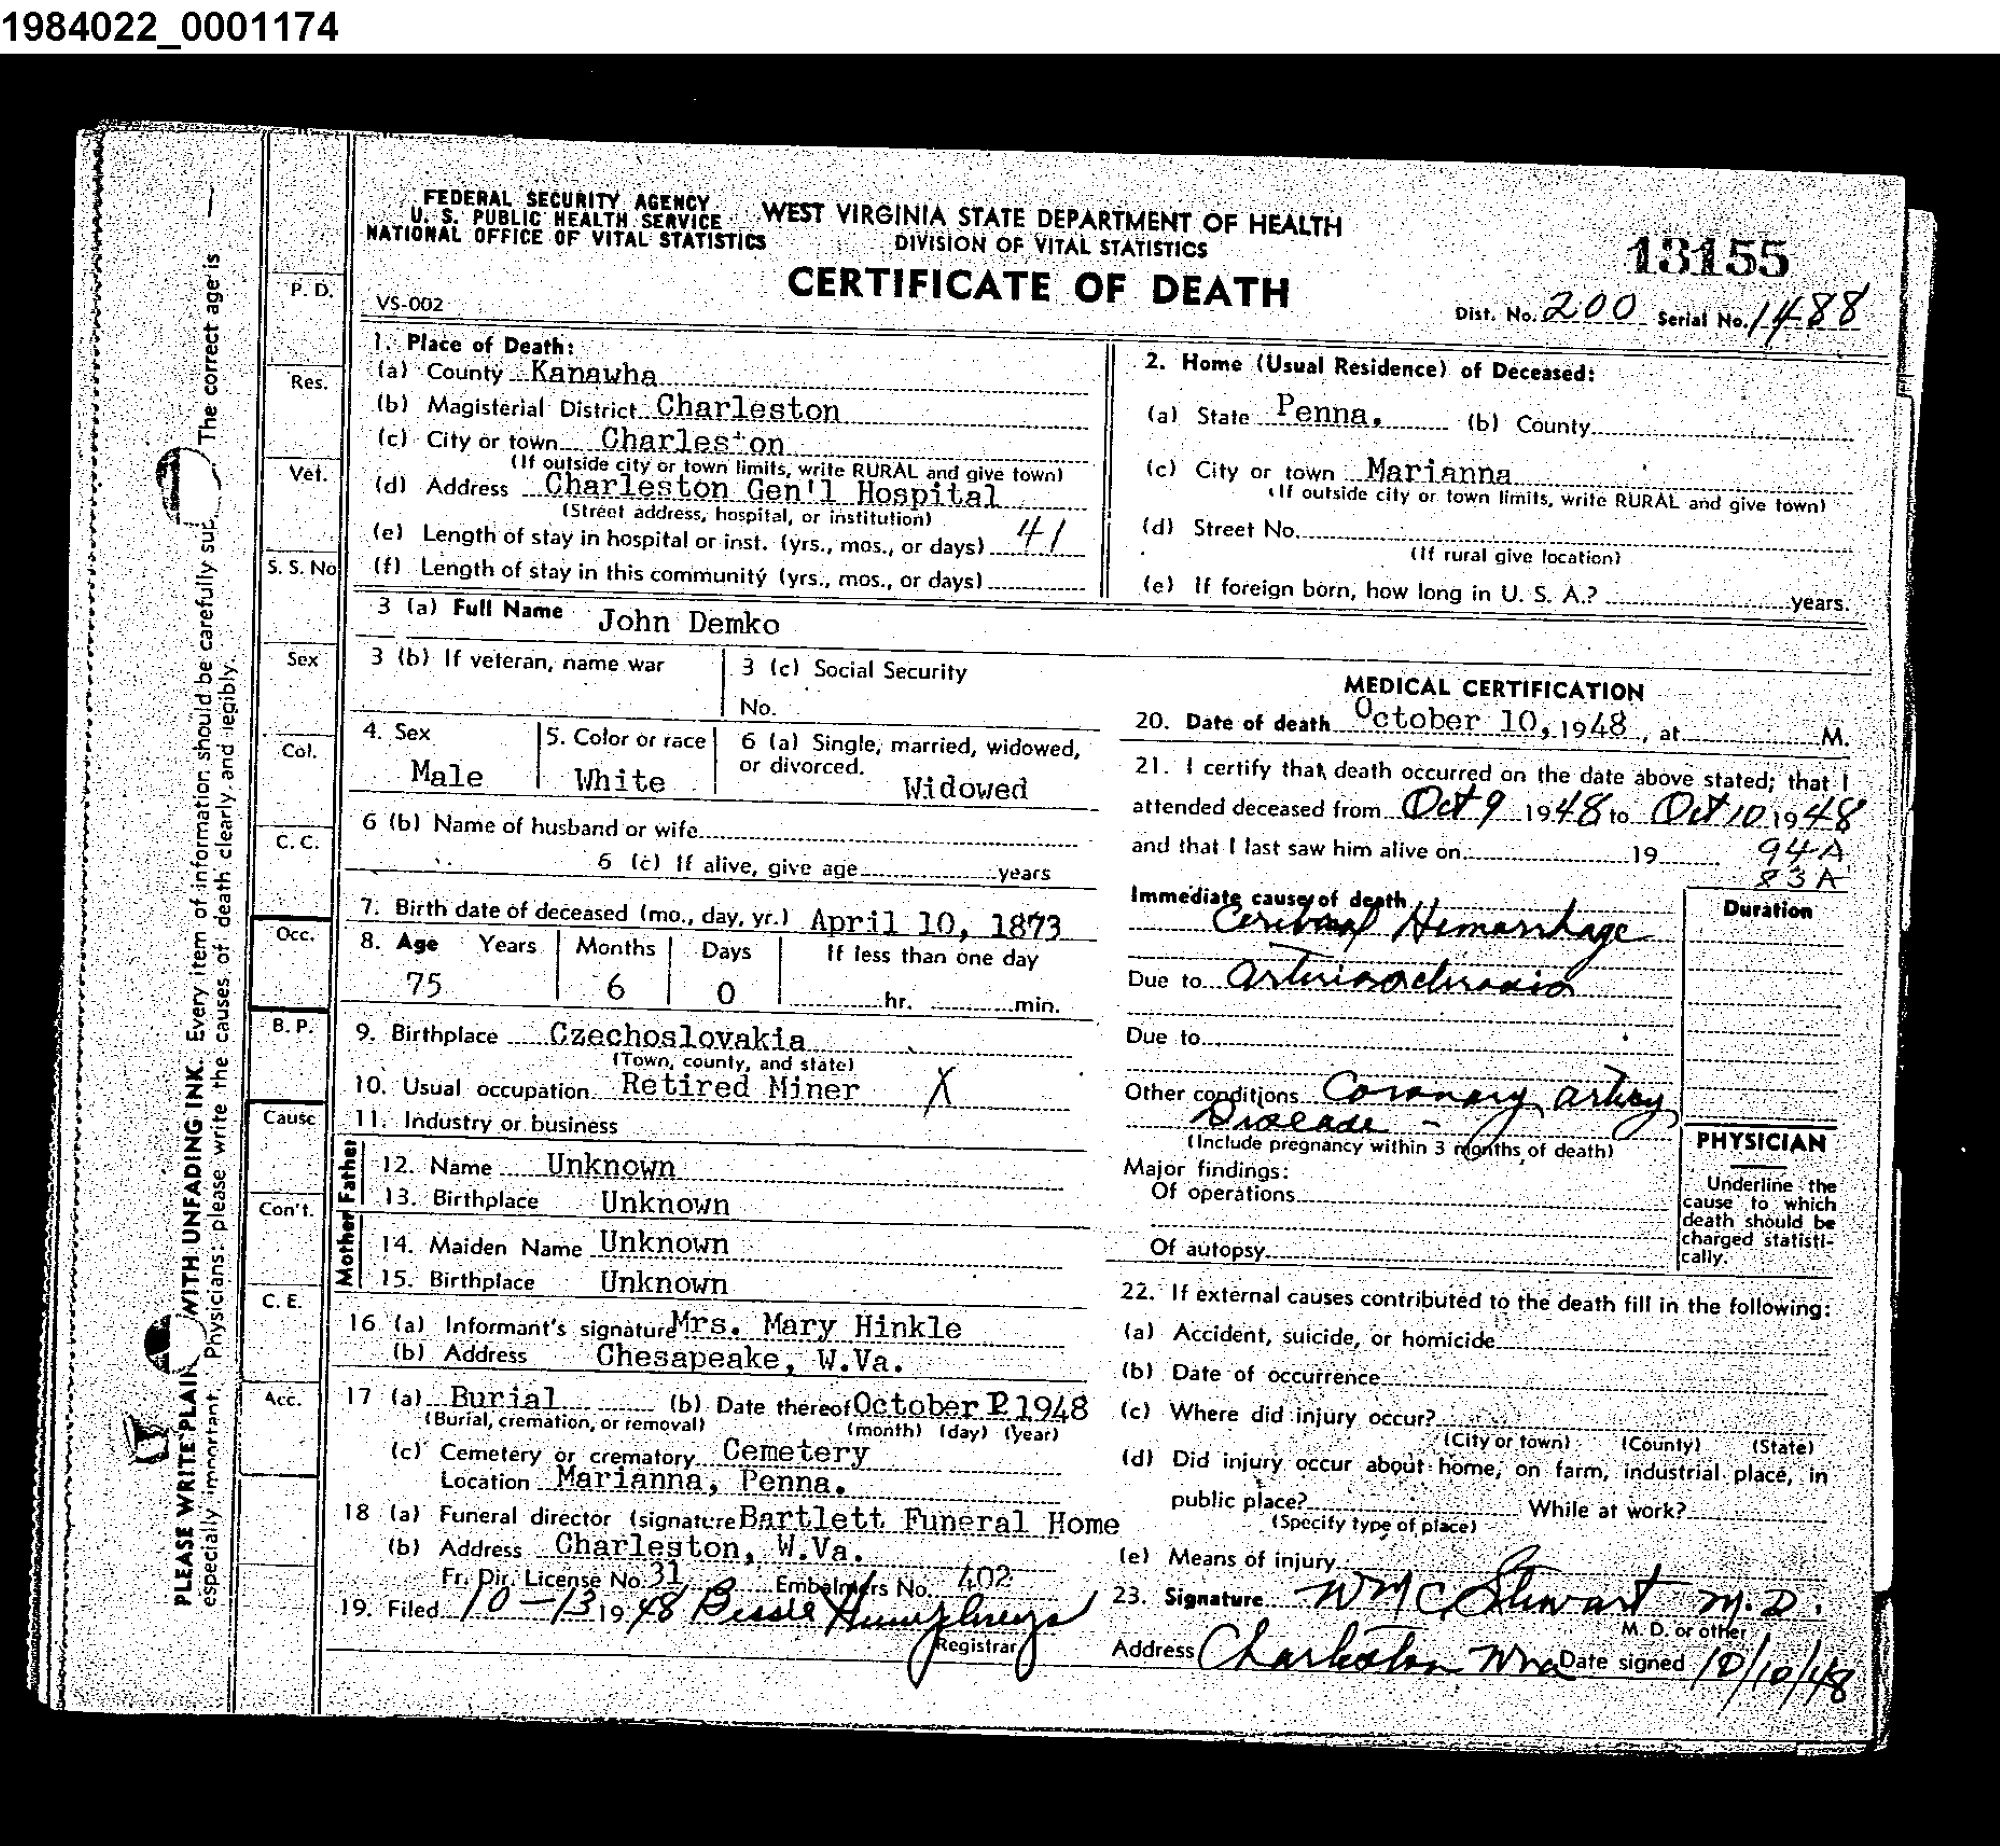 1984022_0001174
FEDERAL SECURITY AGENCY
U. S. PUBLIC HEALTH SERVICE
NATIONAL OFFICE OF VITAL STATISTICS
WEST VIRGINIA STATE DEPARTMENT OF HEALTH
DIVISION OF VITAL STATISTICS
CERTIFICATE OF DEATH
13155
VS-002
Dist. No. 200 Serial No. 1488
1. Place of Death:
(a) County Kanawha
(b) Magisterial District Charleston
(c) City or town Charleston
(If outside city or town limits, write RURAL and give town)
(d) Address Charleston Gen'l Hospital
(Street address, hospital, or institution)
(e) Length of stay in hospital or inst. (yrs., mos., or days) 41
(f) Length of stay in this community (yrs., mos., or days)
2. Home (Usual Residence) of Deceased:
(a) State Penna. (b) County
(c) City or town Marianna
(If outside city or town limits, write RURAL and give town)
(d) Street No.
(If rural give location)
(e) If foreign born, how long in U. S. A.? years.
3 (a) Full Name John Demko
3 (b) If veteran, name war
3 (c) Social Security
No.
4. Sex
Male
5. Color or race
White
6 (a) Single, married, widowed,
or divorced.
Widowed
6 (b) Name of husband or wife
6 (c) If alive, give age years
7. Birth date of deceased (mo., day, yr.) April 10, 1873
8. Age Years Months Days If less than one day
75 6 0 hr. min.
9. Birthplace Czechoslovakia
(Town, county, and state)
10. Usual occupation Retired Miner X
11. Industry or business
Father
12. Name Unknown
13. Birthplace Unknown
Mother
14. Maiden Name Unknown
15. Birthplace Unknown
16 (a) Informant's signature Mrs. Mary Hinkle
(b) Address Chesapeake, W.Va.
17 (a) Burial (b) Date thereof October 1948
(Burial, cremation, or removal) (month) (day) (year)
(c) Cemetery or crematory Cemetery
Location Marianna, Penna.
18 (a) Funeral director (signature Bartlett Funeral Home
(b) Address Charleston, W.Va.
Fr. Dir. License No. 31 Embalmers No. 402
19. Filed 10-13 1948 Bessie Humphreys
Registrar
MEDICAL CERTIFICATION
20. Date of death October 10, 1948, at M.
21. I certify that death occurred on the date above stated; that I
attended deceased from Oct 9 1948 to Oct 10 1948
and that I last saw him alive on 19
94A
83A
Immediate cause of death
Cerebral Hemorrhage
Duration
Due to Arteriosclerosis
Due to
Other conditions Coronary artery
Disease -
(Include pregnancy within 3 months of death)
Major findings:
Of operations
Of autopsy
PHYSICIAN
Underline the
cause to which
death should be
charged statisti-
cally.
22. If external causes contributed to the death fill in the following:
(a) Accident, suicide, or homicide
(b) Date of occurrence
(c) Where did injury occur?
(City or town) (County) (State)
(d) Did injury occur about home, on farm, industrial place, in
public place? While at work?
(Specify type of place)
(e) Means of injury
23. Signature Wm C Stewart M.D.
M. D. or other
Address Charleston WVa Date signed 10/10/48
P. D.
Res.
Vet.
S. S. No
Sex
Col.
C. C.
Occ.
B. P.
Cause
Con't.
C. E.
Acc.
PLEASE WRITE PLAIN WITH UNFADING INK. Every item of information should be carefully sup The correct age is
especially important. Physicians: please write the causes of death clearly and legibly.